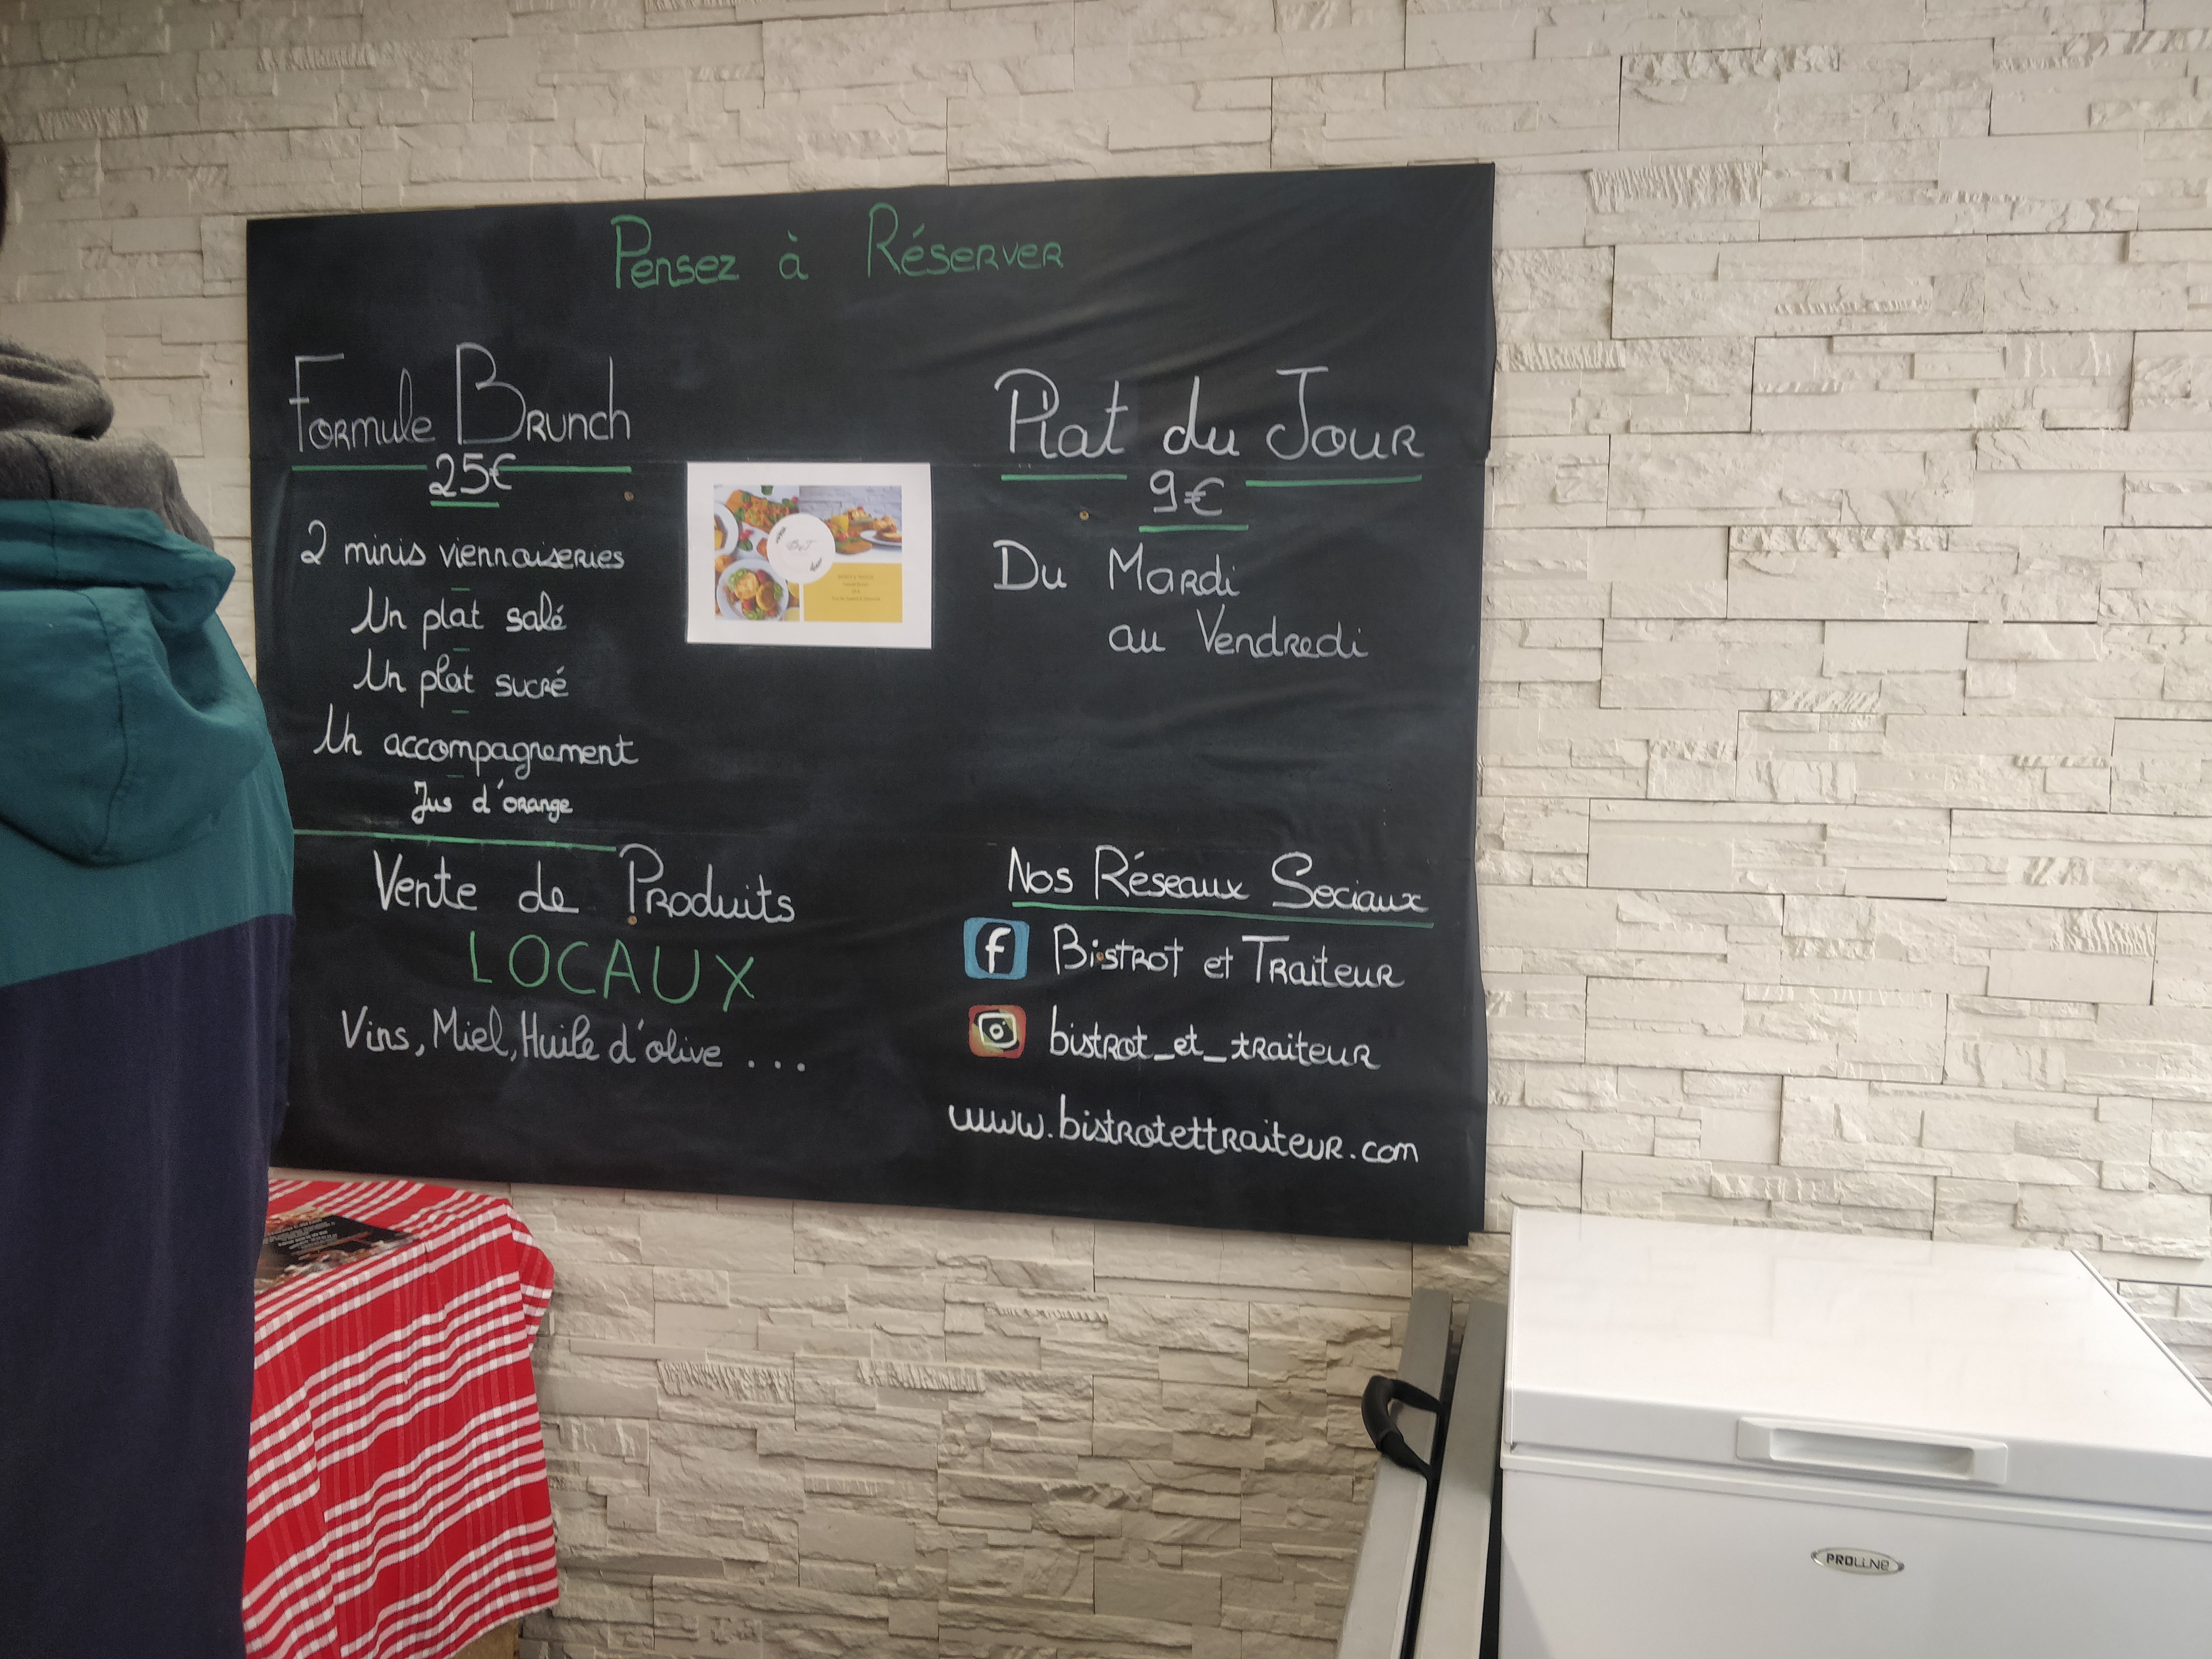 Pensez à Réserver
Formule Brunch
25€
2 minis viennoiseries
Un plat salé
Un plat sucré
Un accompagnement
Jus d'orange
Plat du Jour
9€
Du Mardi
au Vendredi
Vente de Produits
LOCAUX
Vins, Miel, Huile d'olive ...
Nos Réseaux Sociaux
f Bistrot et Traiteur
bistrot_et_traiteur
www.bistrotettraiteur.com
PROLINE